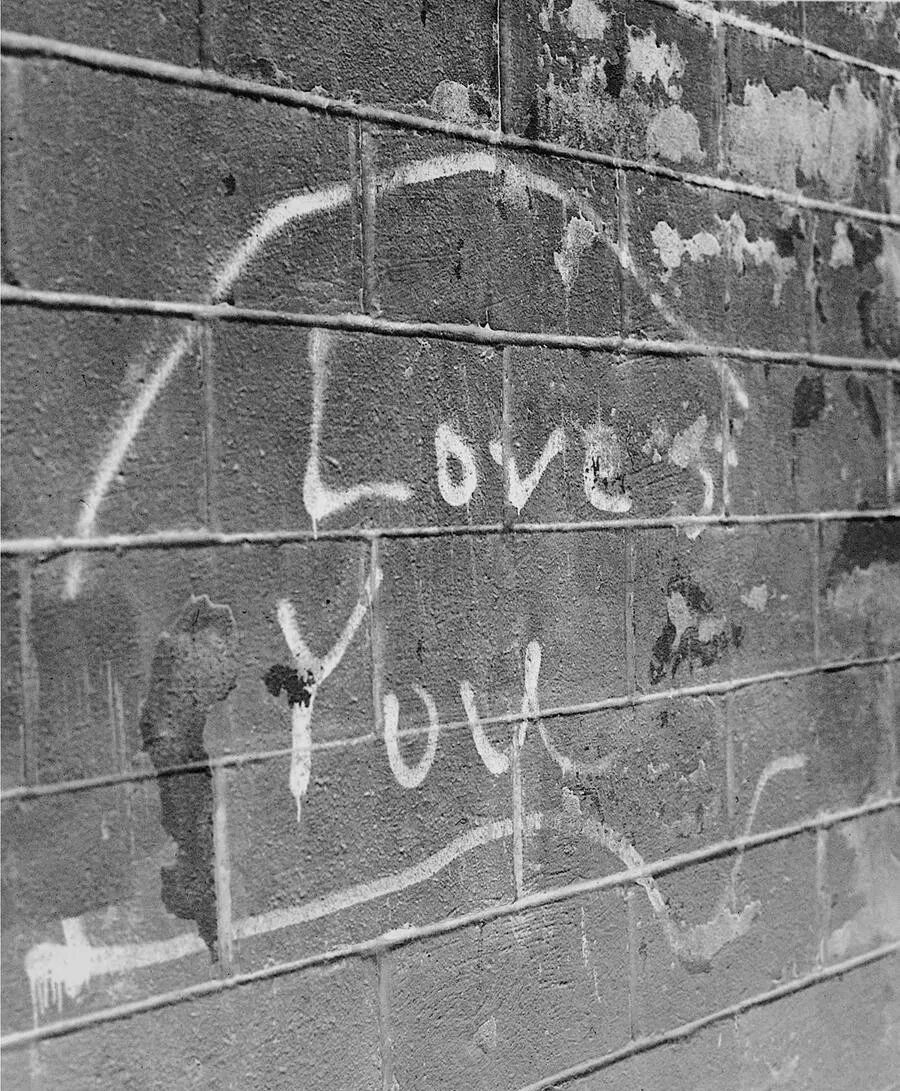 Loves
You